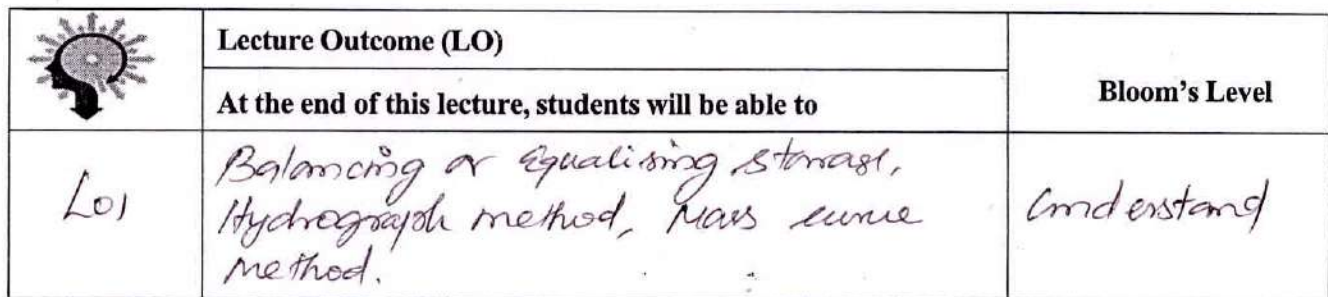 Lecture Outcome (LO)
At the end of this lecture, students will be able to
Bloom's Level
LO1
Balancing or Equalising storage,
Hydrograph method, Mass curve
method.
Understand